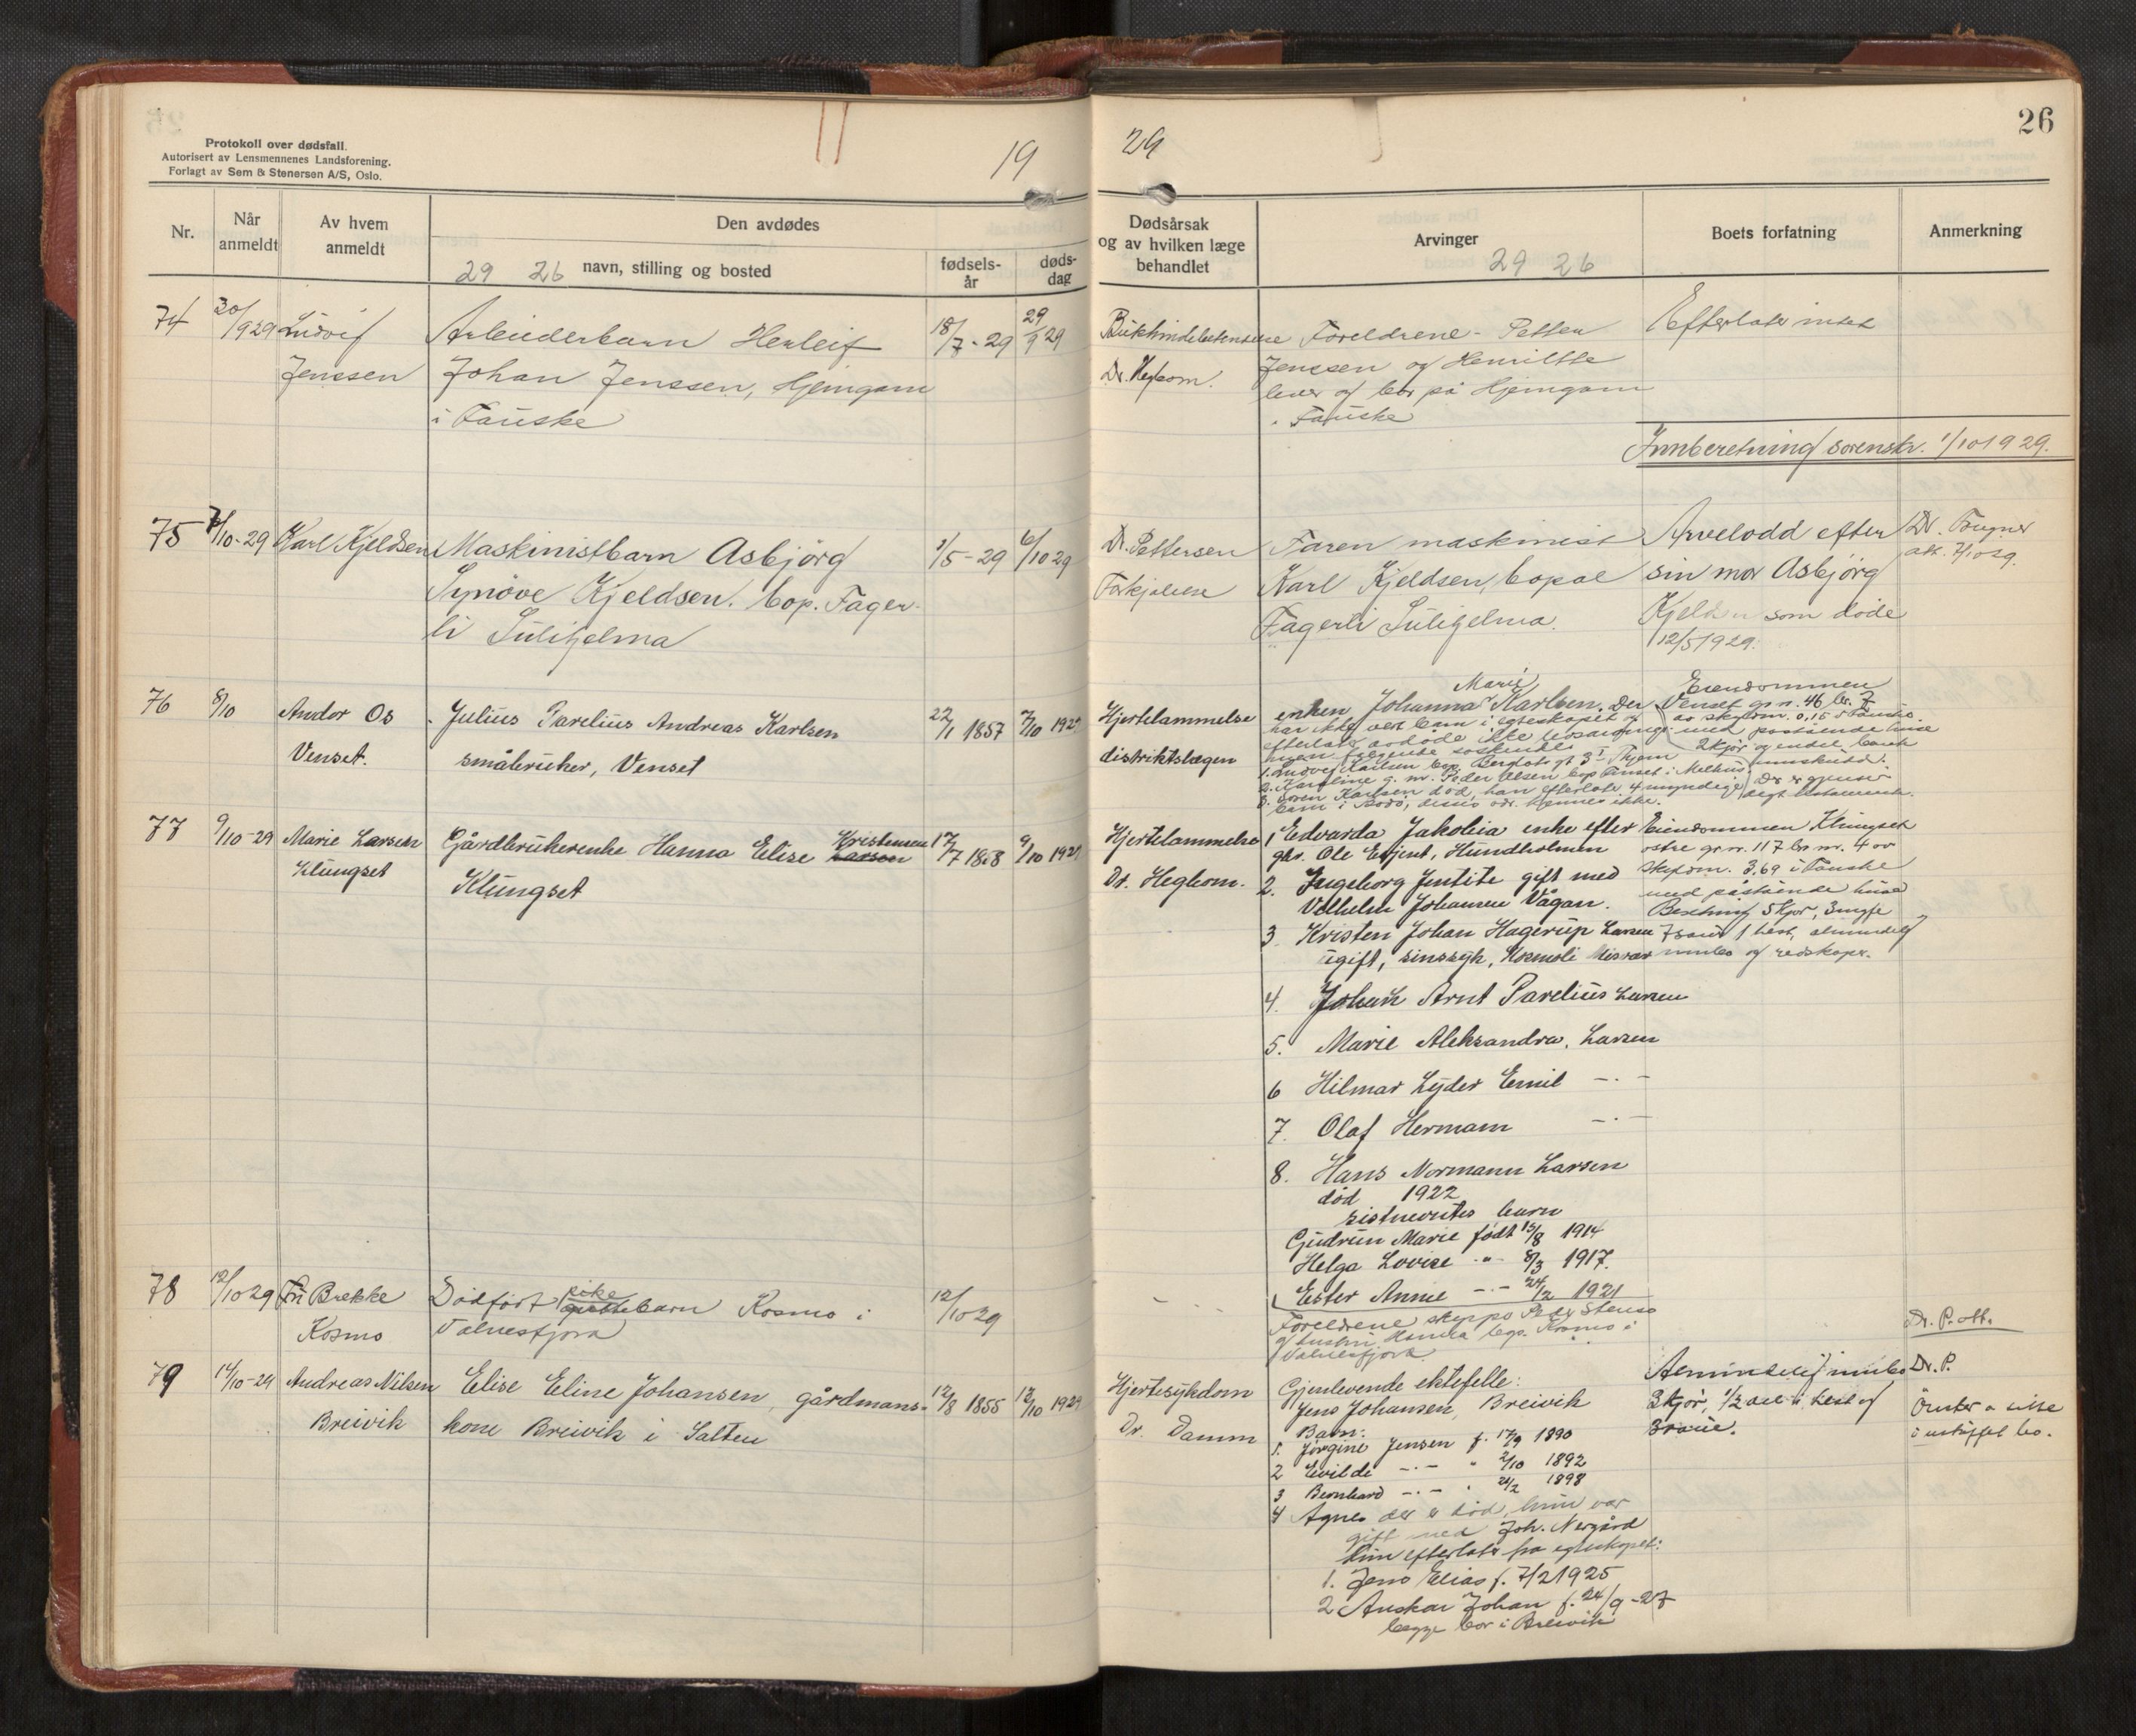 Protokoll over dødsfall.
Autorisert av Lensmennenes Landsforening.
Forlagt av Sem & Stenersen A/S, Oslo.
19
29
26
Nr.
Når anmeldt
Av hvem anmeldt
Den avdødes
29 26 navn, stilling og bosted
fødsels-år
døds-dag
Dødsårsak og av hvilken læge behandlet
Arvinger
29 26
Boets forfatning
Anmerkning
74
30/9 29
Ludvif
Jenssen
Arbeiderbarn Herleif
Johan Jenssen, Hjemgam
i Fauske
18/7-29
29/9 29
Dr. Hegbom.
Foreldrene - Petter
Jenssen og Henritte
lever og bor på Hjemgam
i Fauske
Efterlater intet
Innberetning sorenskr. 1/10 1929.
75
7/10-29
Karl Kjeldsen
Maskinistbarn Asbjörg
Synöve Kjeldsen. bop. Fager-
li Sulitjelma
1/5-29
6/10 29
Dr. Pettersen
Forkjølelse
Faren maskinist
Karl Kjeldsen, bopæl
Fagerli Sulitjelma.
Arvelodd efter
sin mor Asbjörg
Kjeldsen som döde
12/5 1929.
Dr.
att. 7/10 29.
76
8/10
Andor Os
Venset.
Julius Parelius Andreas Karlsen
småbruker, Venset
22/1 1857
7/10 1929
Hjertelammelse
distriktslægen
Marie
enken Johanna Karlsen. Der
har ikke vert barn i egteskapet og
efterlater avdöde ikke livsarvinger
men følgende søskende
1. Ludvig Karlsen bop.
2. Karoline g. m. Peder Olsen bop i Melhus
3. Sören Karlsen död, han efterlater 4 myndige
barn i Bodö, disses adr. kjennes ikke.
Eiendommen
Venset gr.nr. 46 br. 7
av skyldm. 0,15 i Fauske
med påstående huse
2 kjör og endel
innskudd.
Der er gjensi-
digt testamente.
77
9/10-29
Marie Larsen
Klungset
Gårdbrukerenke Hanna Elise Kristensen Larsen
Klungset
17/7 1858
9/10 1929
Hjertelammelse
Dr. Hegbom.
1 Edvarda Jakobia enke efter
gbr. Ole Evjent, Hundholmen
2. Ingeborg Jentite gift med
Vilhelm Johansen Vågan.
3. Kristen Johan Hagerup Larsen
ugift, sinssyk, Kosmoli Misvær
4. Johan Arnt Parelius Larsen
5. Marie Aleksandra, Larsen
6 Hilmar Lyder Emil -.-
7. Olaf Hermann -.-
8. Hans Normann Larsen
död 1922
sistnevntes barn
Gudrun Marie födt 15/8 1914
Helga Lovise -"- 8/3 1917.
Ester Annie -"- 24/2 1921
Eiendommen Klungset
östre gr.nr. 117 br.nr. 4 av
Skyldm. 3.69 i Fauske
med påstående huse
Besetning 5 kjör, 3 ungfe
7 sauer 1 hest, almindelig
innbo og redskaper.
78
12/10 29
Fru Brekke
Kosmo
Dödfödt pike guttebarn Kosmo i
Valnesfjord
12/10 29
Foreldrene Peder Stensø
og hustru Hanna bop. Kosmo i
Valnesfjord.
Dr. P. att.
79
14/10-29
Andreas Nilsen
Breivik
Elise Eline Johansen, gårdmans-
kone Breivik i Salten
12/8 1855
12/10 1929
Hjertesykdom
Dr. Damm
Gjenlevende ektefelle:
Jens Johansen, Breivik
Barn:
1. Jørgine Jensen f. 17/9 1890
2 Evilde -.- " 2/10 1892
3 Bernhard -.- " 21/2 1898
4 Agnes der er död, hun var
gift med Joh. Nergård
hun efterlater fra egteskapet:
1. Jens Elias f. 7/2 1925
2 Anskar Johan f. 24/9-27
begge bor i Breivik
Almindelig innbo
2 kjör, 1/2 hest og
3 sauer.
Dr. P.
Önsker å sitte
i uskiftet bo.